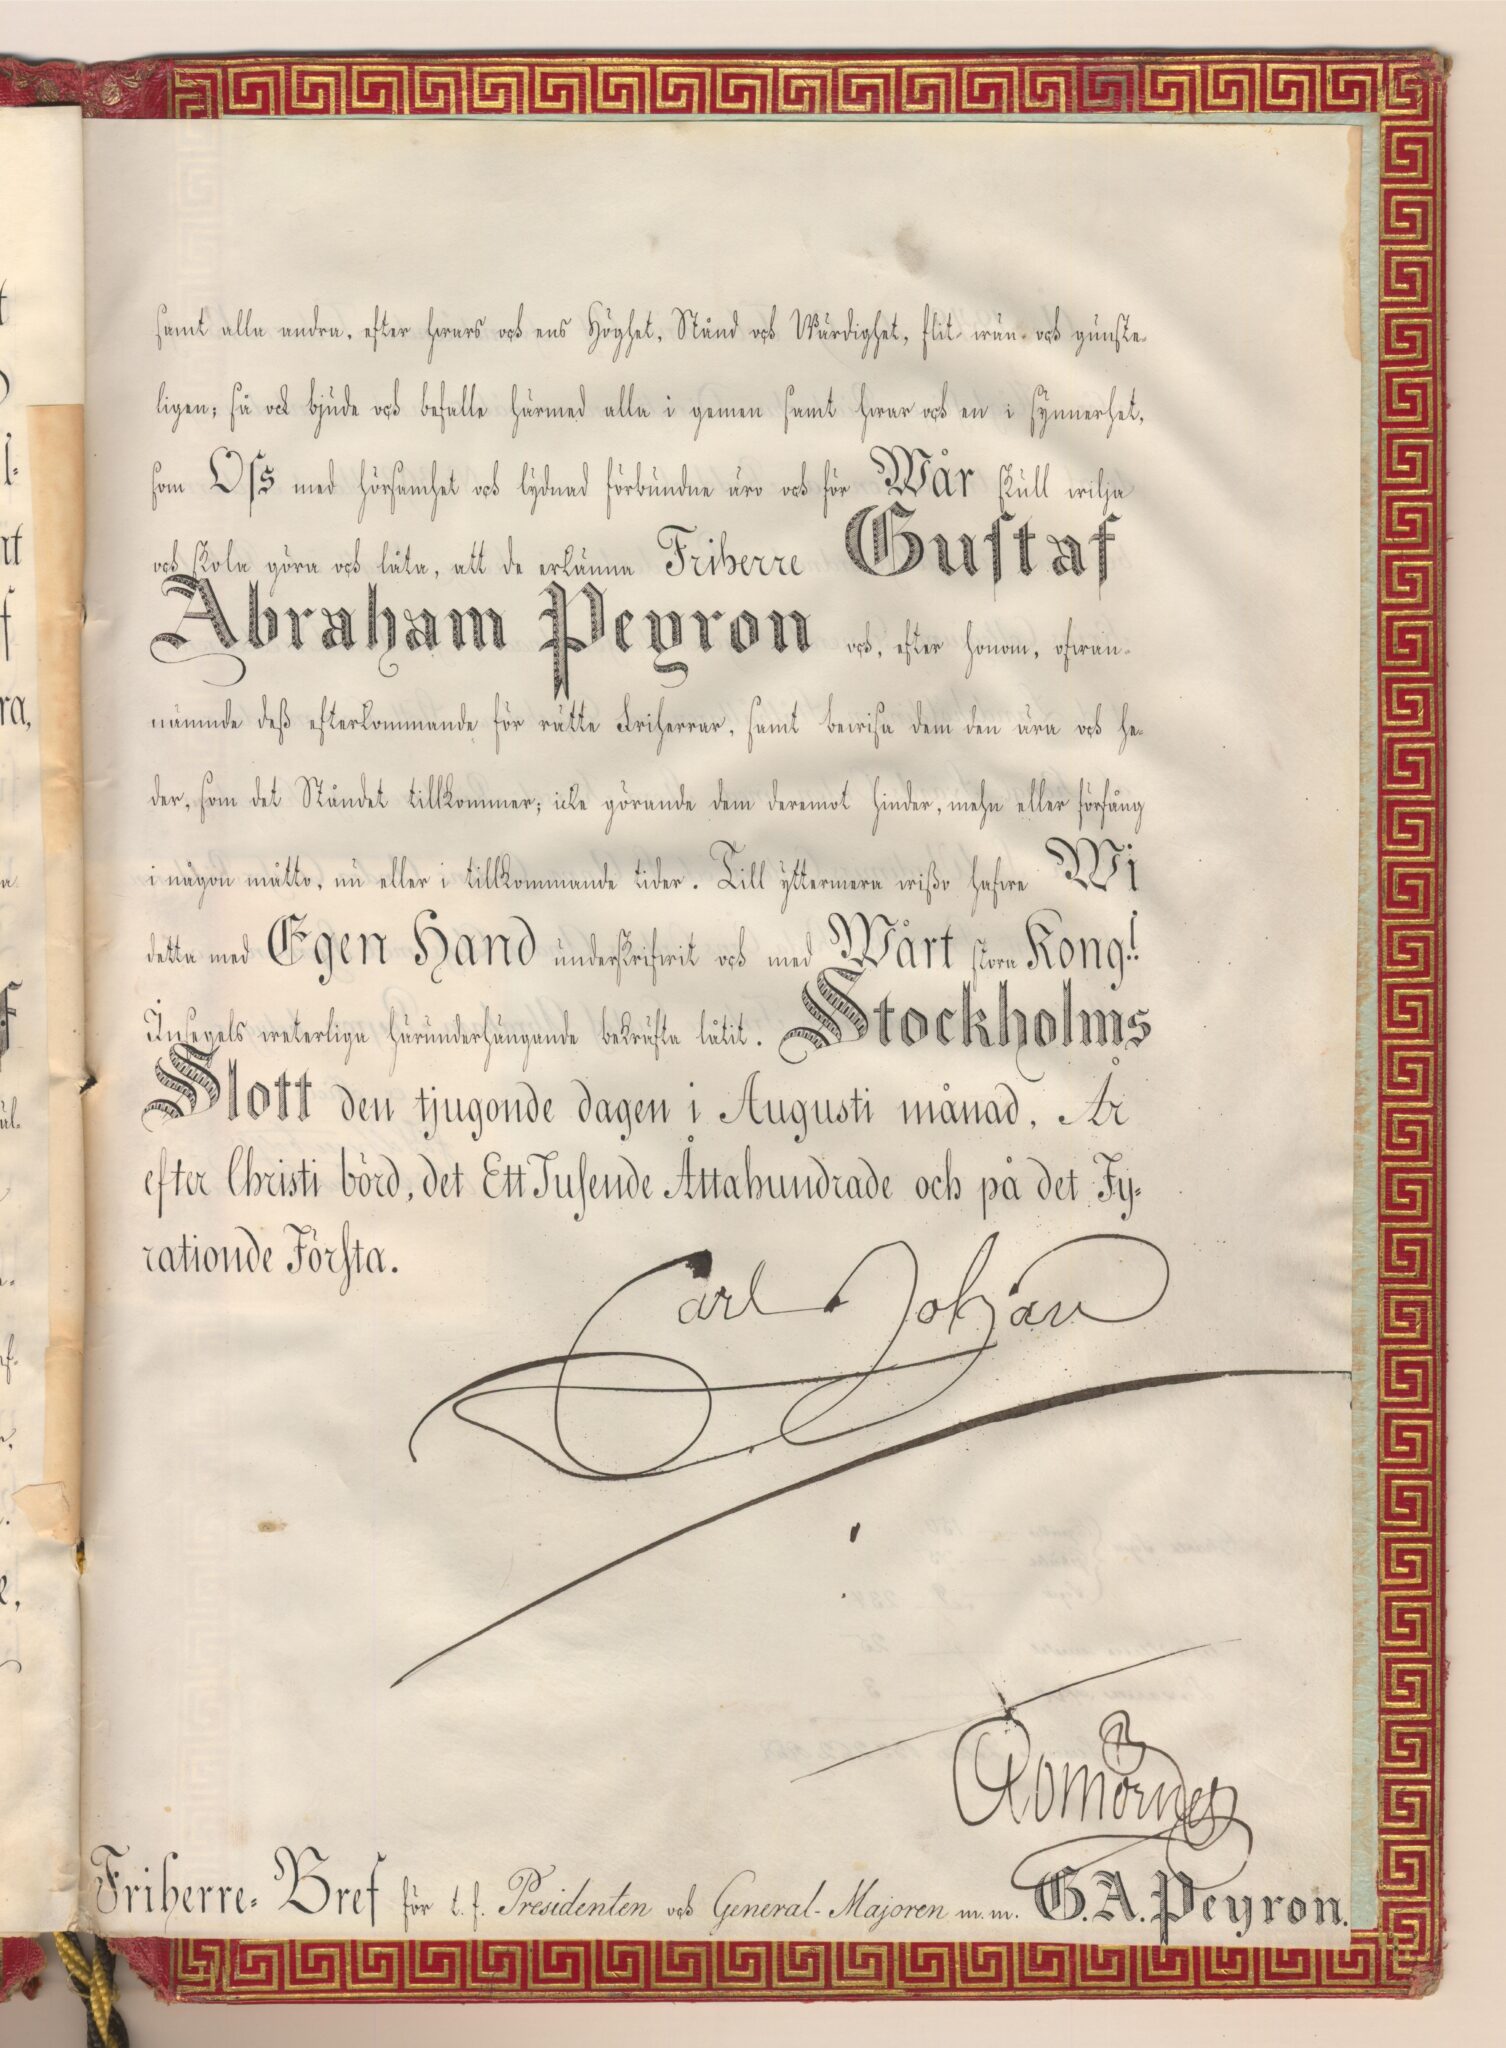 samt alla andra, efter hwars och ens Höghet, Stånd och Wärdighet, flit- wän- och günste-
ligen; så ock bjude och befalle härmed alla i gemen samt hwar och en i synnerhet,
som Oſs med hörsamhet och lydnad förbundne äro och för Wår skull wilja
och skola göra och låta, att de erkänna Friherre Gustaf
Abraham Peyron och, efter honom, ofwan-
nämnde deß efterkommande för rätte Friherrar, samt bewisa dem den ära och he-
der, som det Ståndet tillkommer; icke görande dem deremot hinder, mehn eller förfång
i någon måtto, nu eller i tillkommande tider. Till yttermera wißo hafwe Wi
detta med Egen Hand underskrifwit och med Wårt stora Kongl.
Insegels weterliga härunderhängande bekräfta låtit. Stockholms
Slott den tjugonde dagen i Augusti månad, År
efter Christi börd, det Ett Tusende Åttahundrade och på det Fy-
rationde Första.
Carl Johan
Friherre-Bref för t.f. Presidenten och General-Majoren m.m. G.A. Peyron.